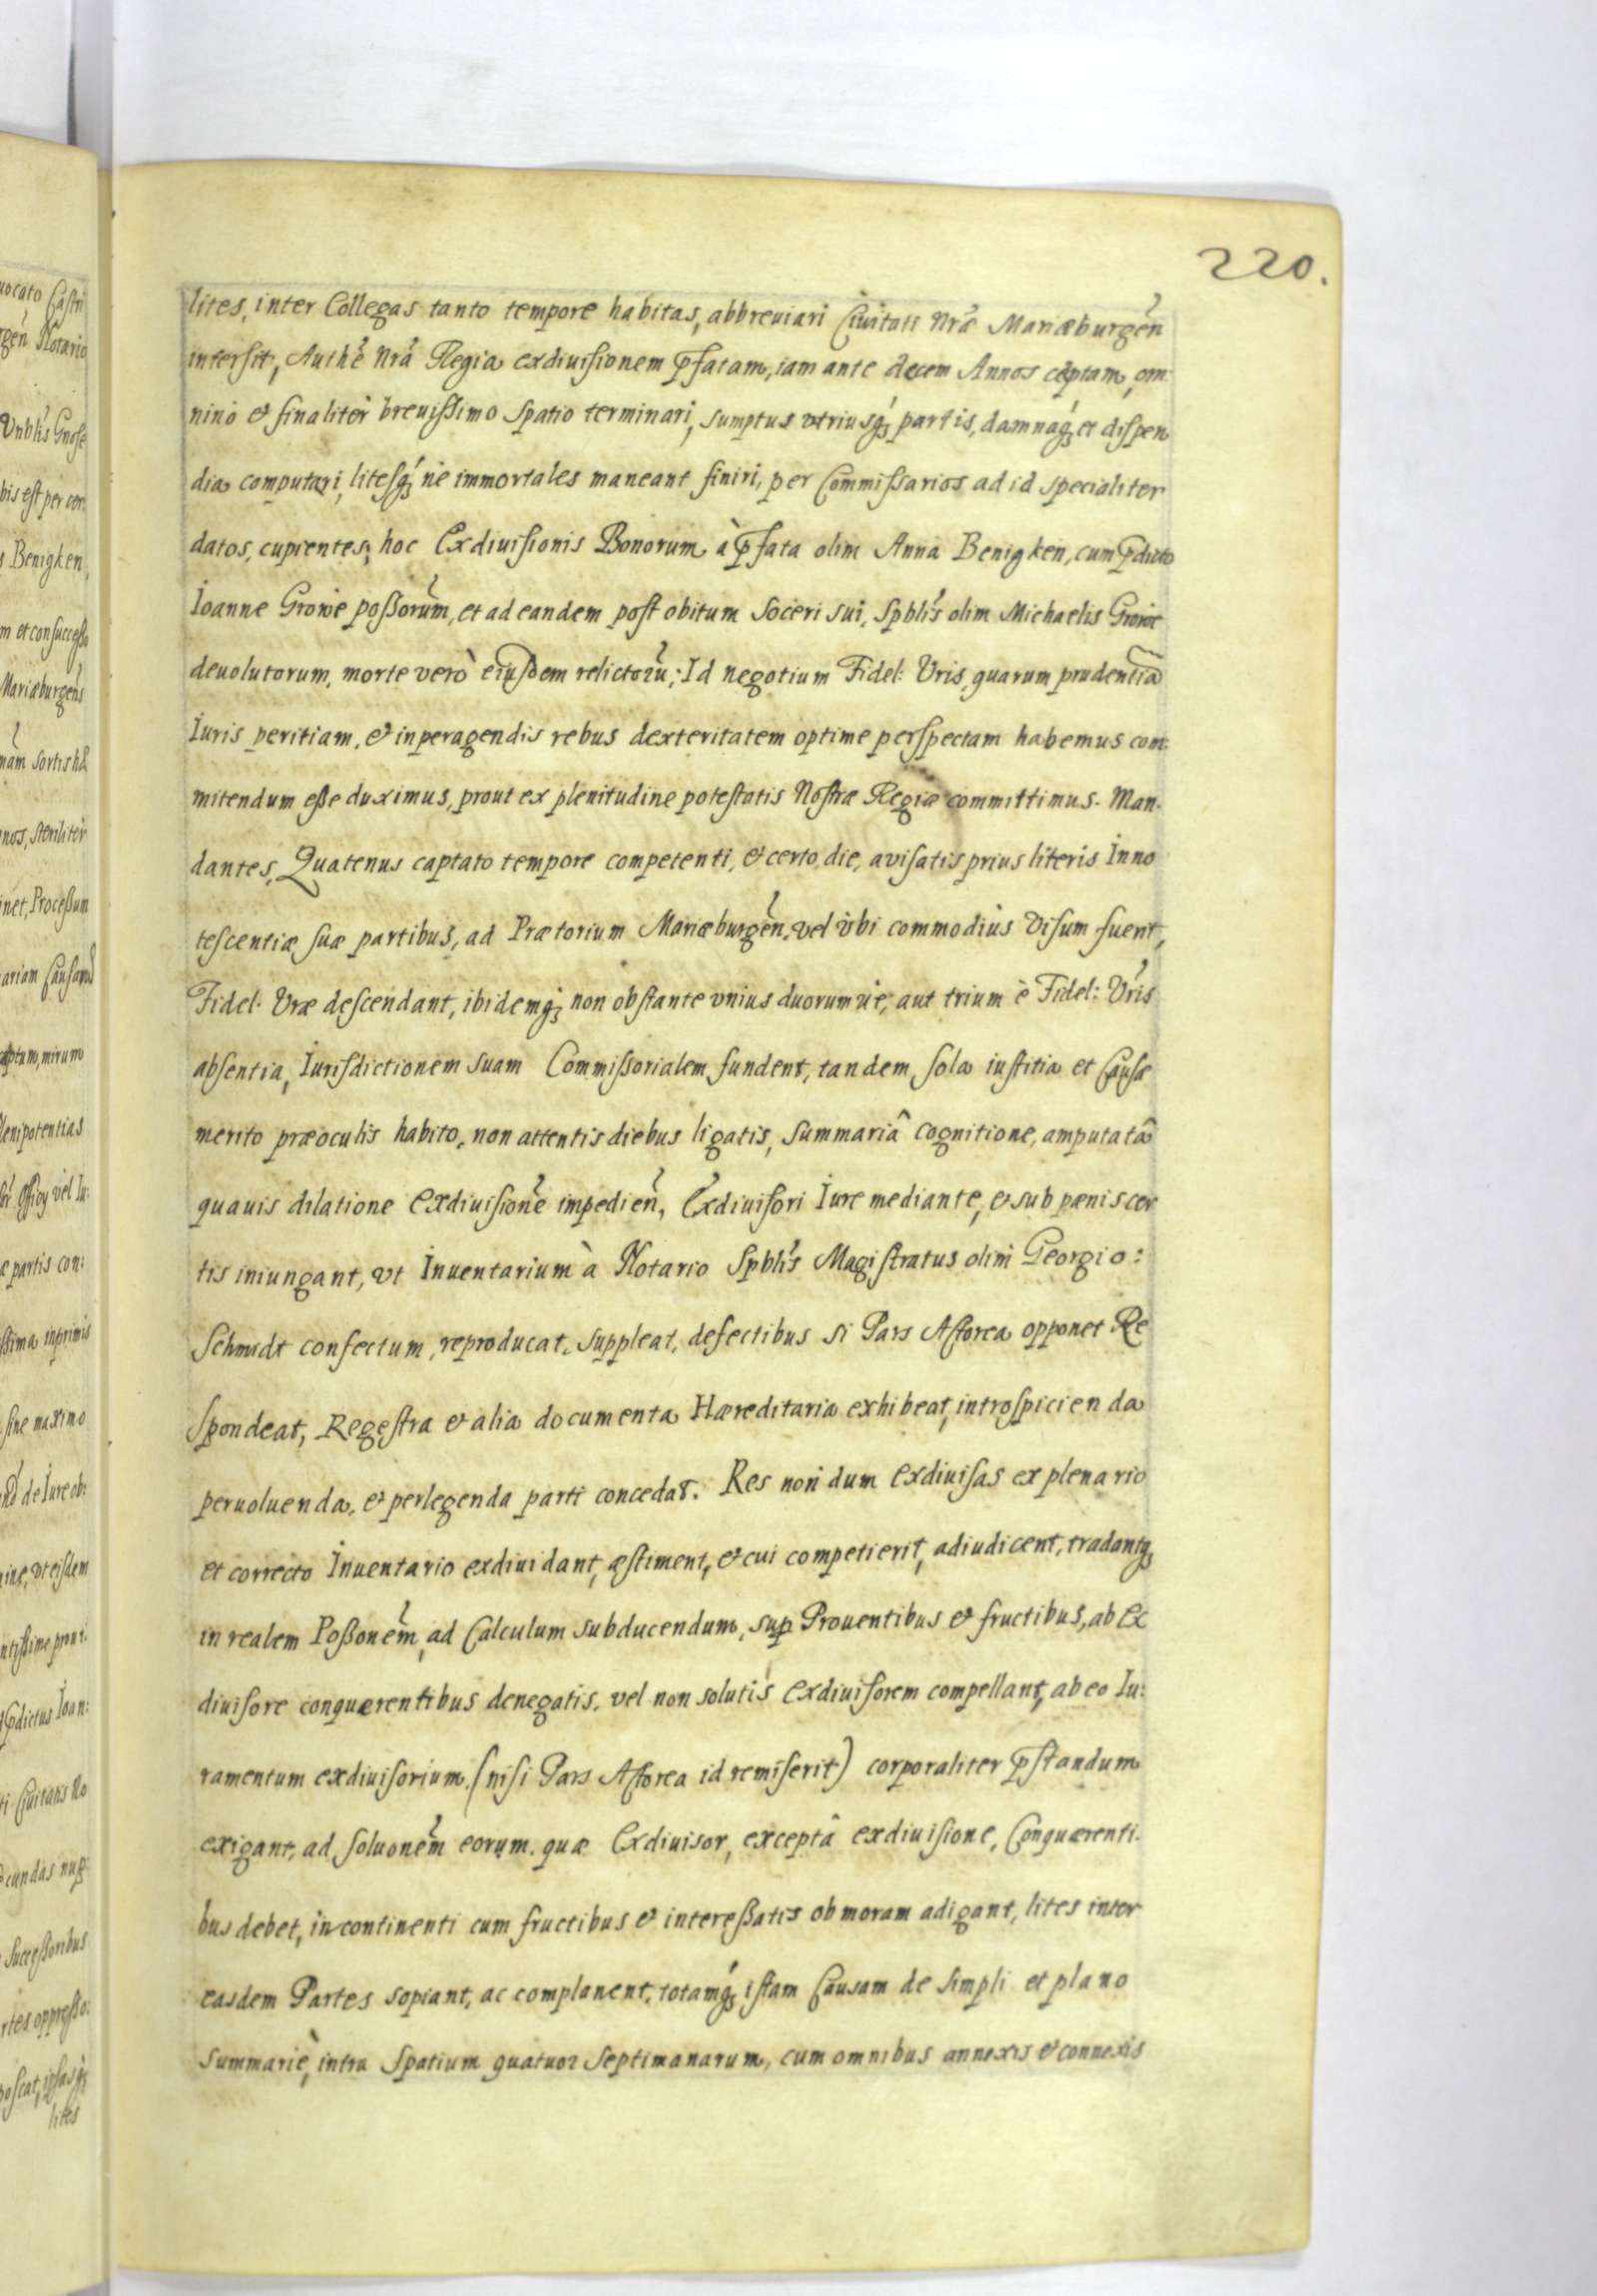 220.
lites, inter Collegas tanto tempore habitas, abbreuiari Ciuitati Nrã Mariæburgen̄
intersit, Authẽ Nrã Regia exdiuisionem p̄fatam, iam ante decem Annos cæptam, om:
nino & finaliter breuissimo spatio terminari, sumptus vtriusq₃ partis, damnaq₃ et dispen
dia computari, litesq₃ ne immortales maneant finiri, per Commissarios ad id specialiter
datos, cupientes; hoc Exdiuisionis Bonorum à p̄fata olim Anna Benigken, cum p̄dicto
Ioanne Growe possorum̃, et ad eandem post obitum soceri sui, Spblis olim Michaelis Growe
deuolutorum, morte verò eiusdem relictorũ; Id negotium Fidel: Vris, quarum prudentiã
Iuris peritiam, & in peragendis rebus dexteritatem optime perspectam habemus com:
mitendum esse duximus, prout ex plenitudine potestatis Nostræ Regiæ committimus. Man.
dantes, Quatenus captato tempore competenti, & certo die, avisatis prius literis Inno
tescentiæ suæ partibus, ad Prætorium Mariæburgen̄, vel vbi commodius visum fuerit,
Fidel. Vræ descendant, ibidemq₃ non obstante vnius duorumue, aut trium è Fidel: Vris
absentia, Iurisdictionem suam Commissorialem fundent, tandem sola iustitia et Causæ
merito præoculis habito, non attentis diebus ligatis, summariâ cognitione, amputatâ
quauis dilatione Exdiuisionẽ impedien̄, Exdiuisori Iure mediante, & sub pænis cer
tis iniungant, vt Inuentarium à Notario Spblis Magistratus olim Georgio:
Schmidt confectum, reproducat, suppleat, defectibus si Pars Actorea opponet Re
spondeat, Regestra & alia documenta Hæreditaria exhibeat, introspicienda
peruoluenda, & perlegenda parti concedat. Res non dum exdiuisas ex plenario
et correcto Inuentario exdiuidant, æstiment, & cui competierit, adiudicent, tradantq₃
in realem Possonem̃, ad Calculum subducendum, sup Prouentibus & fructibus, ab Ex
diuisore conquærentibus denegatis, vel non solutis Exdiuisorem compellant, ab eo Iu:
ramentum exdiuisorium (nisi Pars Actorea id remiserit) corporaliter p̄standum
exigant, ad soluonem̃ eorum, quæ Exdiuisor, exceptâ exdiuisione, Conquærenti.
bus debet, in continenti cum fructibus & interessatis ob moram adigant, lites inter
easdem Partes sopiant, ac complanent, totamq₃ istam Causam de simpli et plano
summariè, intra spatium quatuor septimanarum, cum omnibus annexis & connexis